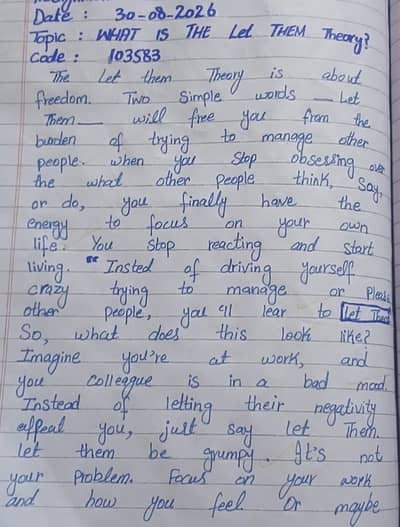 Date : 30-08-2026
Topic : WHAT IS THE Let THEM Theory?
Code : 103583
The Let them Theory is about
freedom. Two Simple words — Let
Them — will free you from the
burden of trying to manage other
people. when you Stop obsessing over
the what other people think, Say,
or do, you finally have the
energy to focus on your own
life. You stop reacting and start
living. " Insted of driving yourself
crazy trying to manage or Please
other people, you 'll lear to Let Them
So, what does this look like?
Imagine you're at work, and
you colleague is in a bad mood.
Instead of letting their negativity
affeal you, just say Let Them.
let them be grumpy. It's not
your Problem. Focus on your work
and how you feel. Or maybe